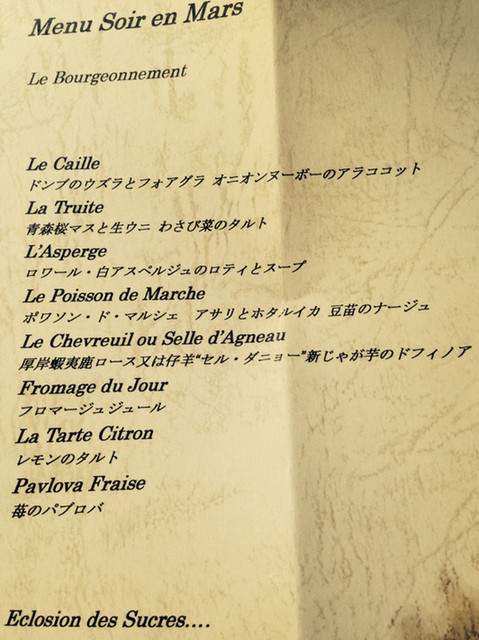 Menu Soir en Mars
Le Bourgeonnement
Le Caille
ドンブのウズラとフォアグラ オニオンヌーボーのアラココット
La Truite
青森桜マスと生ウニ わさび菜のタルト
L'Asperge
ロワール・白アスペルジュのロティとスープ
Le Poisson de Marche
ポワソン・ド・マルシェ　アサリとホタルイカ 豆苗のナージュ
Le Chevreuil ou Selle d'Agneau
厚岸蝦夷鹿ロース又は仔羊“セル・ダニョー”新じゃが芋のドフィノア
Fromage du Jour
フロマージュジュール
La Tarte Citron
レモンのタルト
Pavlova Fraise
苺のパブロバ
Eclosion des Sucres....